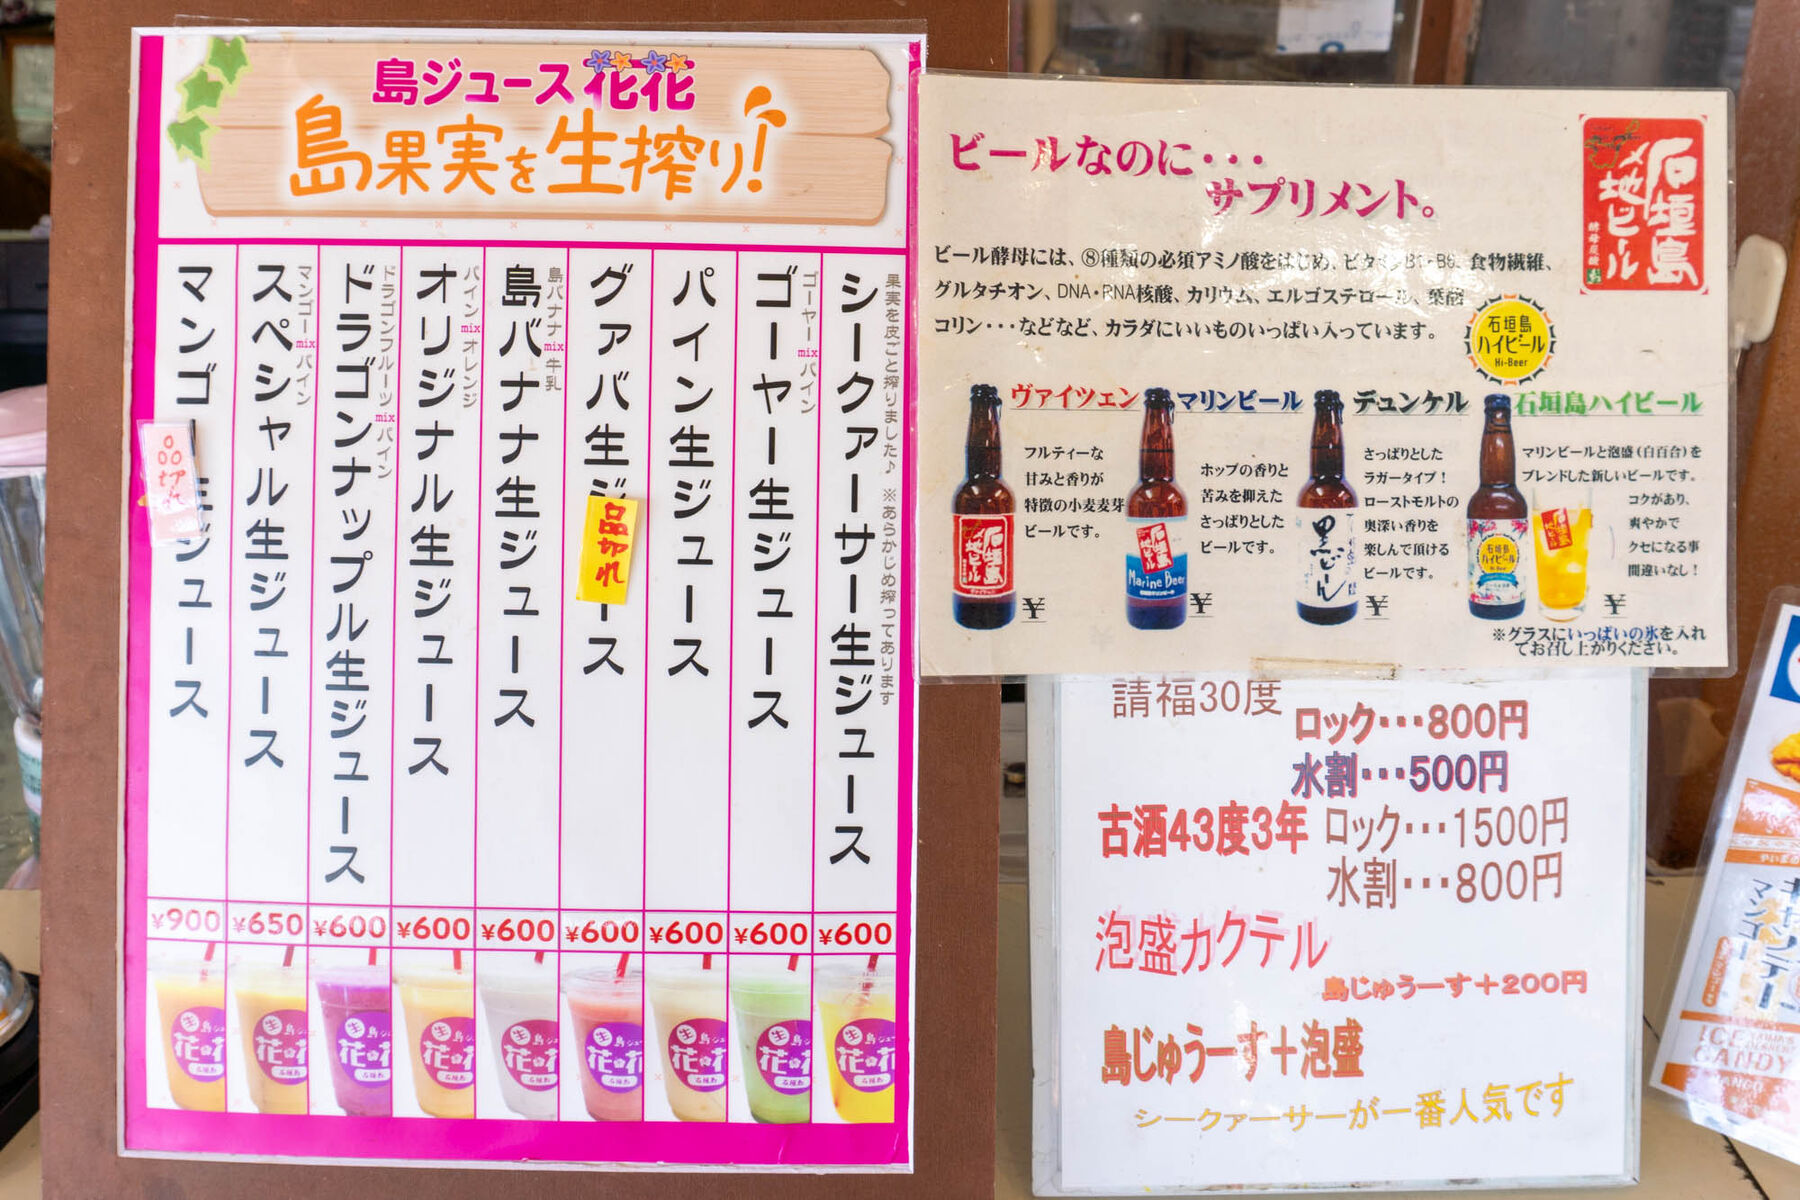 島ジュース花花
島果実を生搾り!
果実を皮ごと搾りました♪ ※あらかじめ搾ってあります
シークァーサー生ジュース
¥600
ゴーヤーmixパイン
ゴーヤー生ジュース
¥600
パイン生ジュース
¥600
グァバ生ジ
品切れ
ース
¥600
島バナナmix牛乳
島バナナ生ジュース
¥600
パインmixオレンジ
オリジナル生ジュース
¥600
ドラゴンフルーツmixパイン
ドラゴンナップル生ジュース
¥600
マンゴーmixパイン
スペシャル生ジュース
¥650
マンゴ
品切れ
生ジュース
¥900
ビールなのに・・・
サプリメント。
石垣島
地ビール
ビール酵母には、⑧種類の必須アミノ酸をはじめ、ビタミンB1・B6、食物繊維、
グルタチオン、DNA・RNA核酸、カリウム、エルゴステロール、葉酸
コリン・・・などなど、カラダにいいものいっぱい入っています。
石垣島
ハイビール
Hi-Beer
ヴァイツェン
フルティーな
甘みと香りが
特徴の小麦麦芽
ビールです。
¥
マリンビール
ホップの香りと
苦みを抑えた
さっぱりとした
ビールです。
¥
デュンケル
さっぱりとした
ラガータイプ！
ローストモルトの
奥深い香りを
楽しんで頂ける
ビールです。
¥
石垣島ハイビール
マリンビールと泡盛（白百合）を
ブレンドした新しいビールです。
コクがあり、
爽やかで
クセになる事
間違いなし！
¥
※グラスにいっぱいの氷を入れ
てお召し上がりください。
石垣島
地ビール
石垣島
地ビール
Marine Beer
黒ビール
石垣島
ハイビール
Hi-Beer
請福30度
ロック・・・800円
水割・・・500円
古酒43度3年 ロック・・・1500円
水割・・・800円
泡盛カクテル
島じゅうーす＋200円
島じゅうーす＋泡盛
シークァーサーが一番人気です
マンゴー
ICE
CANDY
MANGO